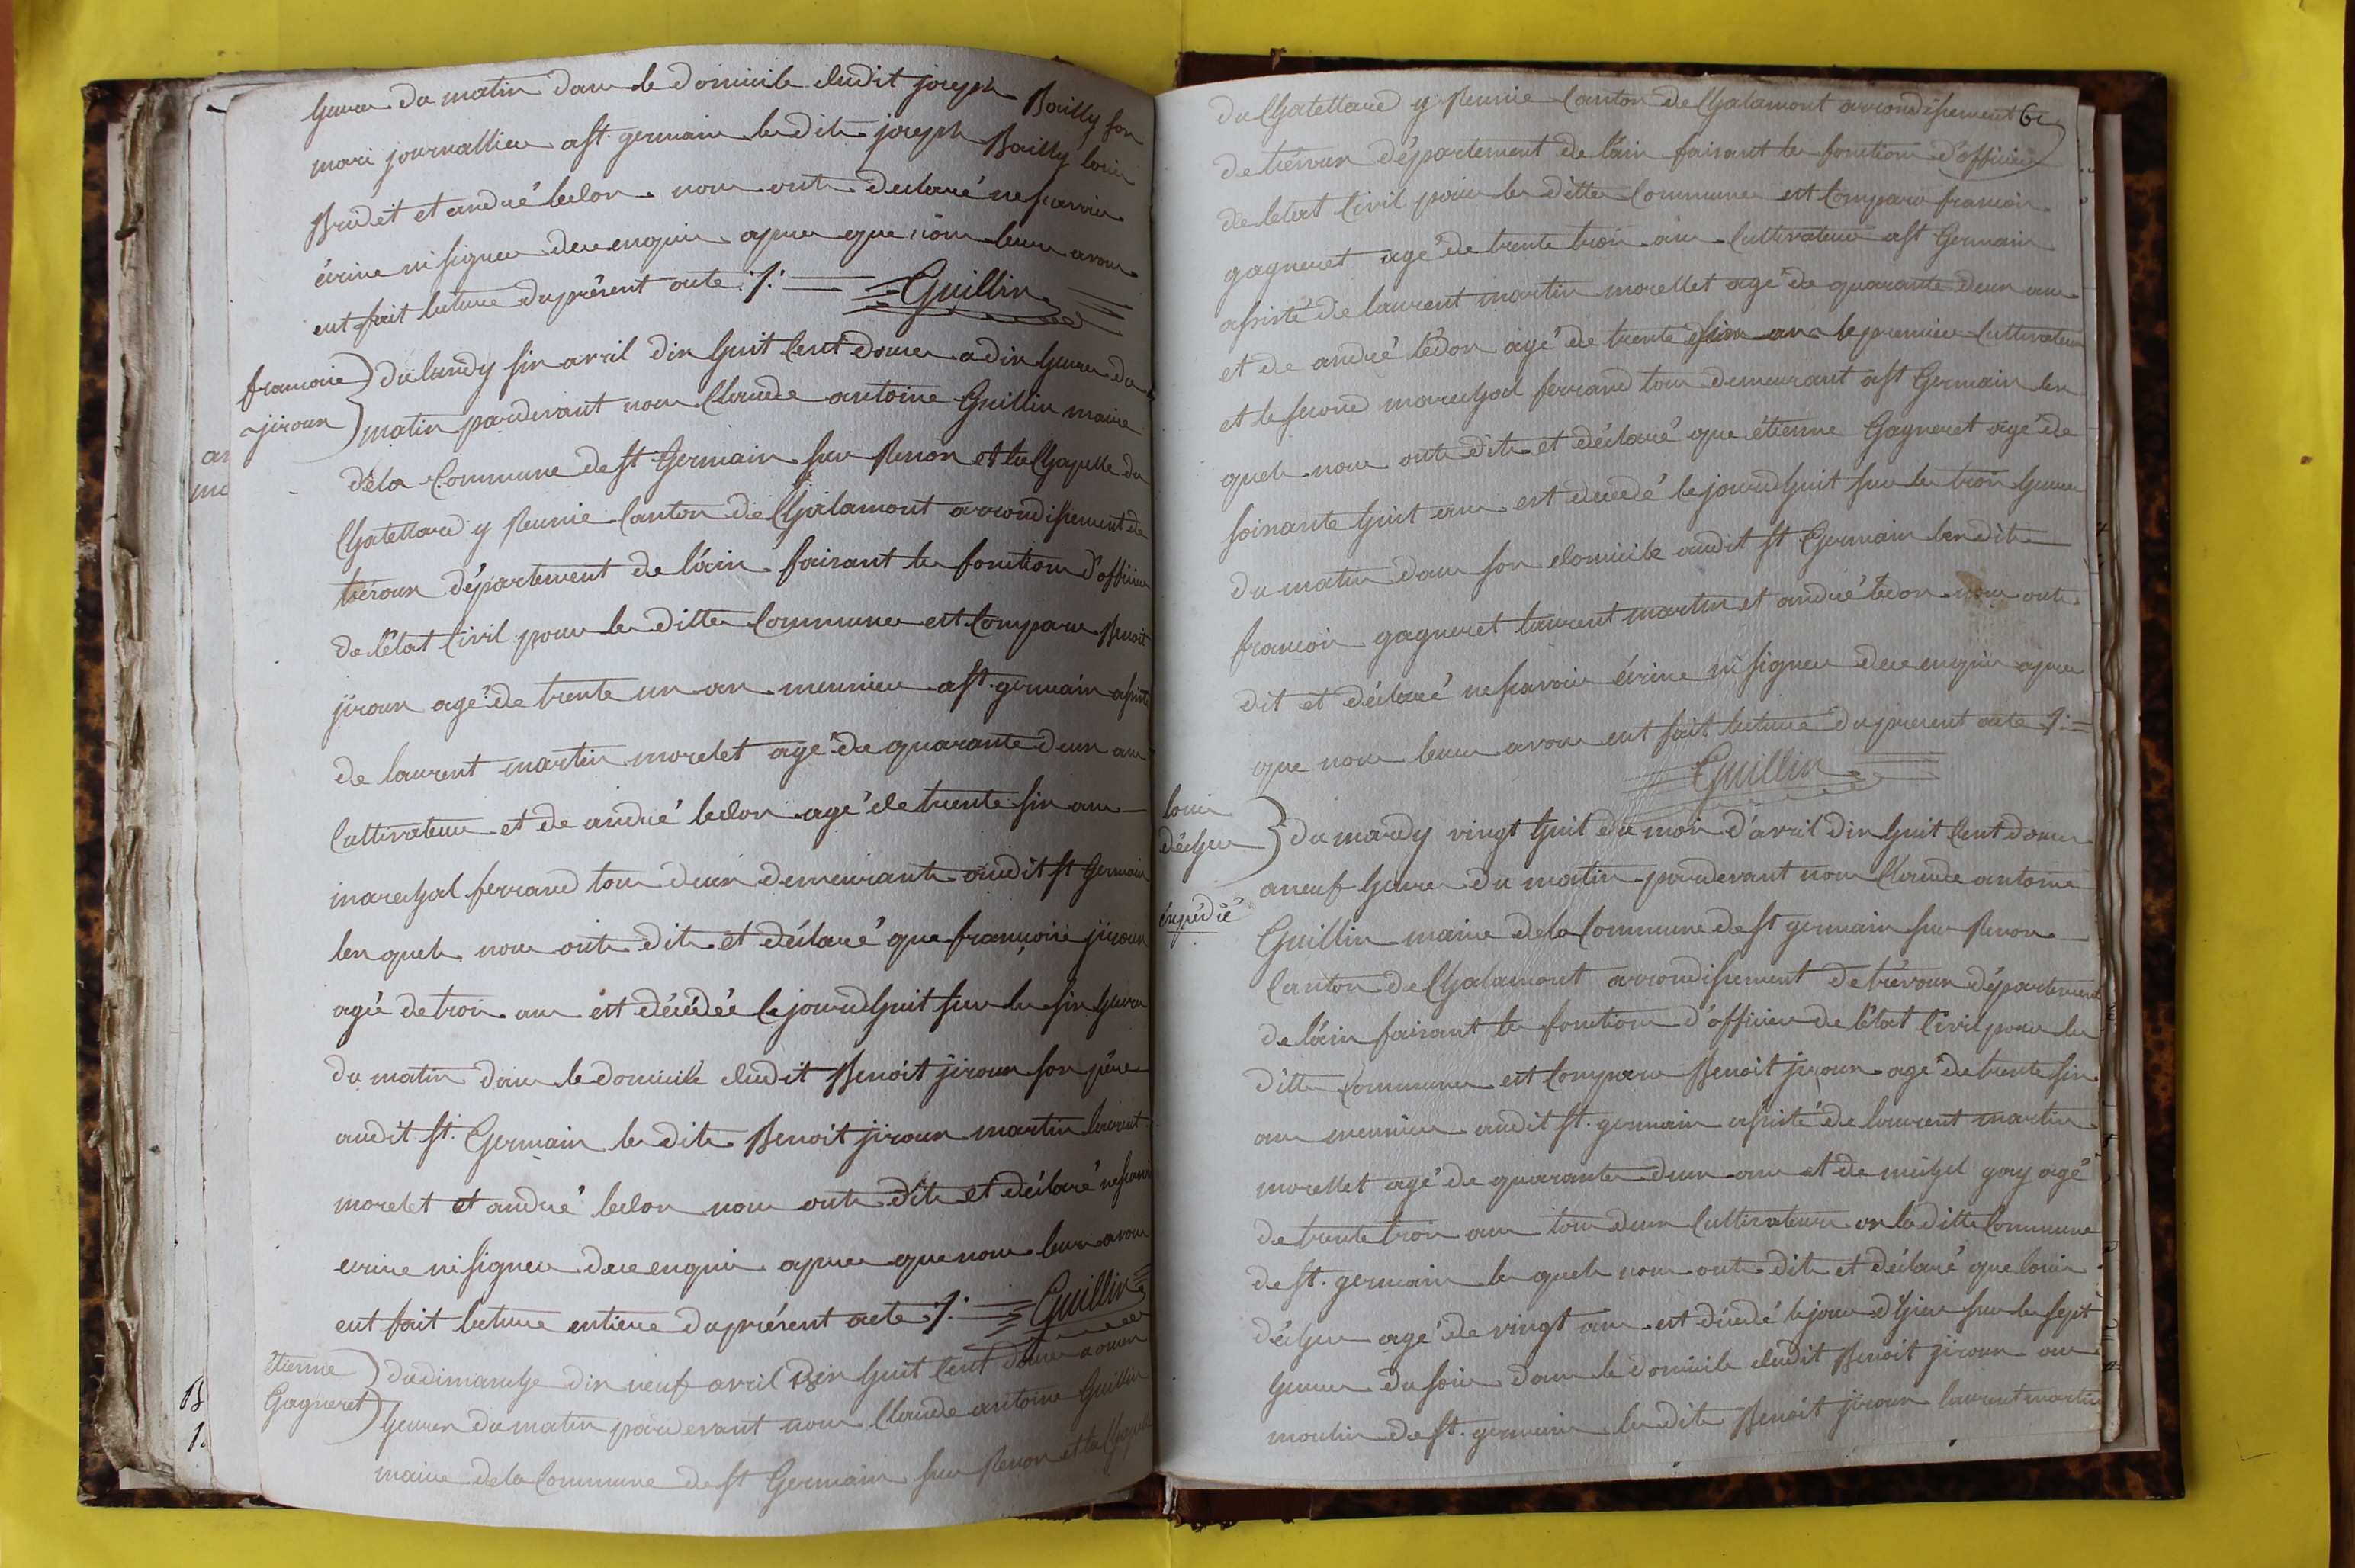 heures du matin dans le domicile dudit joseph Bailly son
mari journallier a st. germain lesdits joseph Bailly louis
Brudet et andré ledon nous onts declaré ne scavoir
écrire ni signer de ce enquis apres que nous leurs avons
eut fait lecture du présent acte ./. Guillin
françoise
jiroux
du lundy six avril dix huit cent douze a dix heures du
matin pardevant nous Claude antoine Guillin maire
déla Commune de st Germain sur Renon et la Chapelle du
Chatellard y Reunie Canton de Chalamont arrondissement de
trévoux département de l'ain faisant les fonctions d'officier
de l'état Civil pour les dittes Communes est Comparu Benoit
jiroux agé de trente un an meunier a st. germain assisté
de laurent martin morelet agé de quarante deux ans
Cultivateur et de andré ledon agé de trente six ans
marechal ferrand tous deux demeurants audit st Germain
lesquels nous onts dits et déclaré que françoise jiroux
agée de trois ans est décédée cejourdhuit sur les six heures
du matin dans le domicile dudit Benoit jiroux son pére
audit st. Germain lesdits Benoit jiroux martin laurent
morelet et andré ledon nous onts dits et déclaré ne scavoir
ecrire ni signer de ce enquis apres que nous leurs avons
eut fait lecture entiere du présent acte ./. Guillin
étienne
Gagneret
du dimanche dix neuf avril dix huit cent douze a onze
heures du matin pardevant nous Claude antoine Guillin
maire de la Commune de st Germain sur Renon et la Chapelle
du Chatellard y Reunie Canton de Chalamont arrondissement
de trévoux département de l'ain faisant les fonctions d'officier
de l'etat Civil pour les dittes Communes est Comparu francois
gagneret agé de trente trois ans Cultivateur a st Germain
assisté de laurent martin morellet agé de quarante deux ans
et de andré lédon agé de trente six ans le premier Cultivateur
et le second marechal ferrand tous demeurant a st Germain les
quels nous onts dits et déclaré que étienne Gagneret agé de
soixante huit ans est decedé cejourdhuit sur les trois heures
du matin dans son domicile audit st Germain lesdits
francois gagneret laurent martin et andré lédon nous onts
dit et déclaré ne scavoir écrire ni signer de ce enquis apres
que nous leurs avons eut fait lecture du present acte ./.
Guillin
louis
décher
éxpédié
du mardy vingt huit du mois d'avril dix huit cent douze
a neuf heures du matin pardevant nous Claude antoine
Guillin maire de la Commune de st germain sur Renon
Canton de Chalamont arrondissement de trévoux département
de l'ain faisant les fonctions d'officier de l'état Civil pour les
dittes Communes est Comparu Benoit jiroux agé de trente six
ans meunier audit st. germain assisté de laurent martin
morellet agé de quarante deux ans et de michel gay agé
de trente trois ans tous deux Cultivateurs en la ditte Commune
de st. germain lesquels nous onts dits et déclaré que louis
décher agé de vingt ans est décedé le jour d'hier sur les sept
heures du soir dans le domicile dudit Benoit jiroux au
moulin de st. germain lesdits Benoit jiroux laurent martin